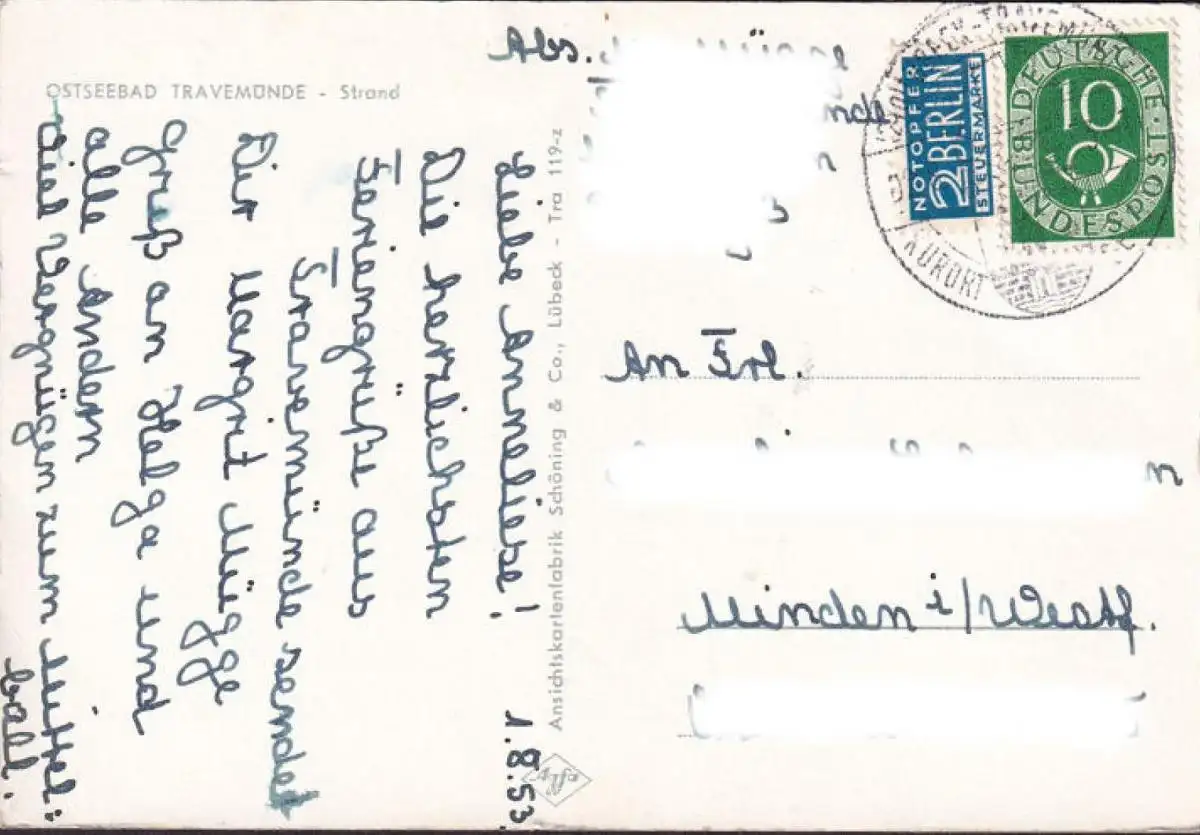 OSTSEEBAD TRAVEMÜNDE - Strand
1.8.53.
Liebe Anneliese!
Die herzlichsten
Feriengrüße aus
Travemünde sendet
Dir Margrit Mügge
Gruß an Helga und
alle andern
Viel Vergnügen zum
ball.
Ansichtskartenfabrik Schöning & Co., Lübeck - Tra 119-z
Abs.
NOTOPFER
2 BERLIN
STEUERMARKE
DEUTSCHE BUNDESPOST
10
KURORT
An Frl.
Minden i/Westf.